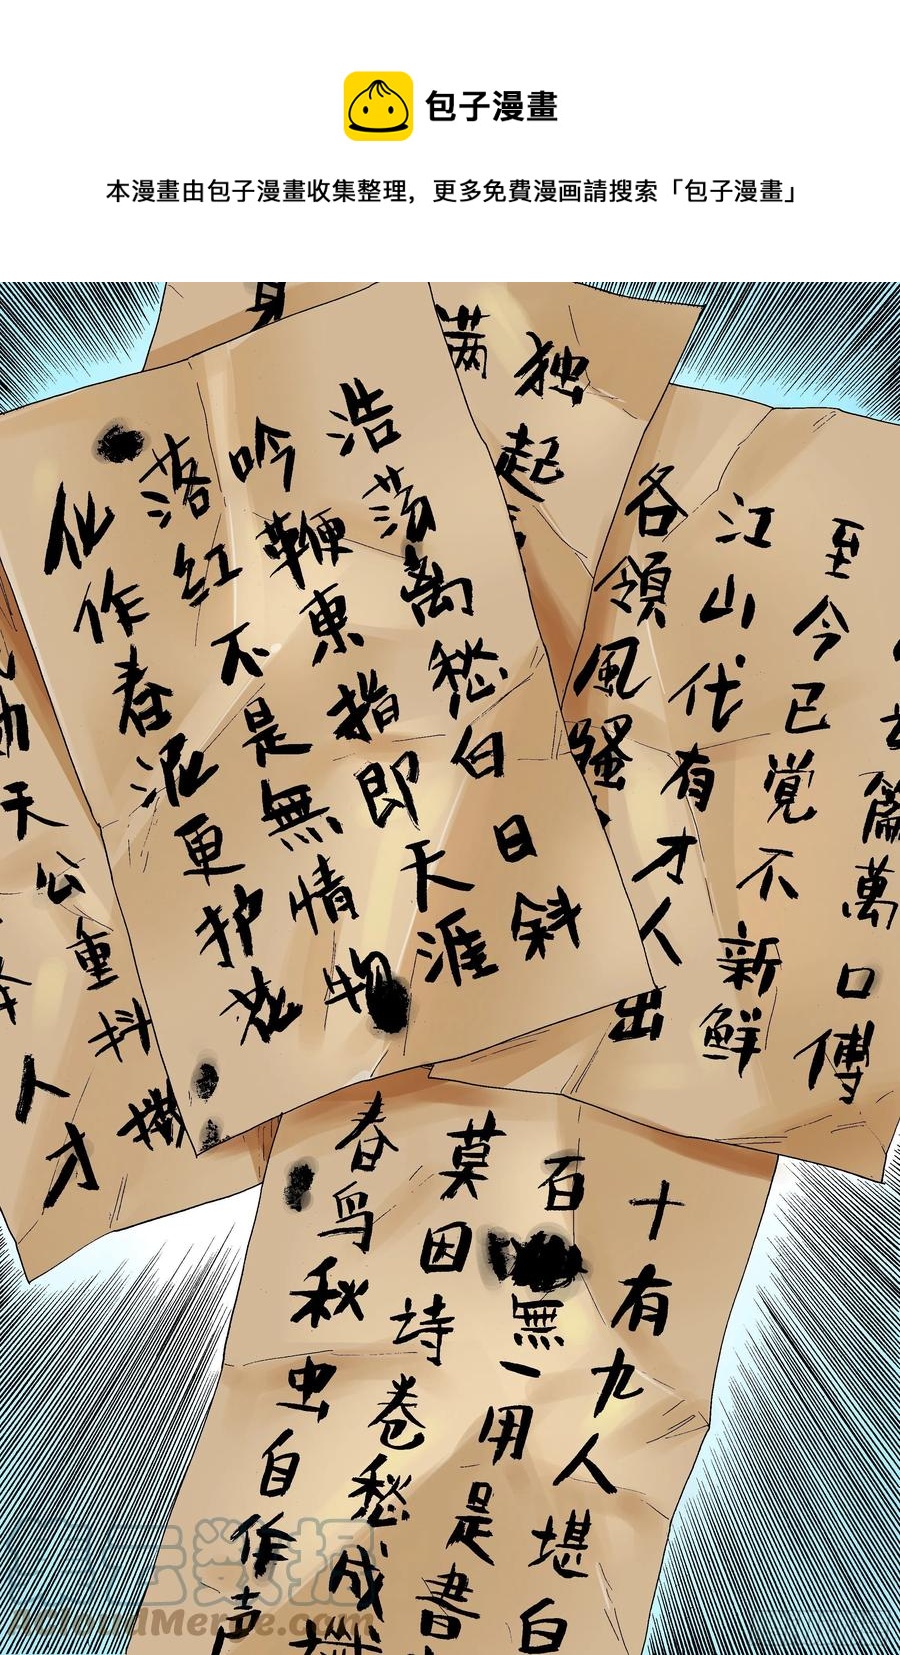 包子漫畫
本漫畫由包子漫畫收集整理，更多免費漫画請搜索「包子漫畫」
身
满
独起
浩荡离愁白日斜
吟鞭東指即天涯
落红不是無情物
化作春泥更护花
篇萬口傳
至今已覚不新鲜
江山代有才人出
各領風騷
天公重抖擞
人才
十有九人堪白
百無一用是書
莫因诗卷愁成
春鸟秋虫自作声
ACloudMerge.com